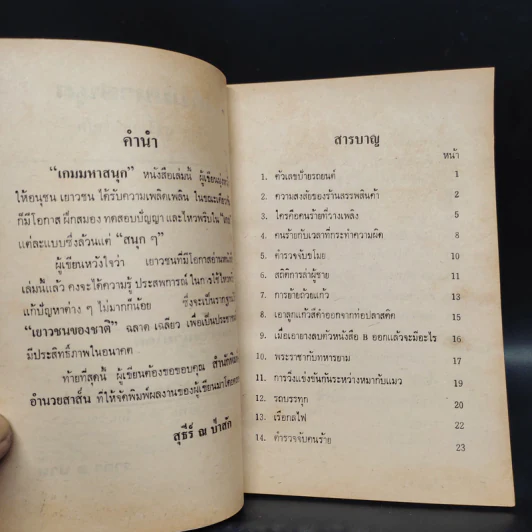 คำนำ
“เกมมหาสนุก” หนังสือเล่มนี้ ผู้เขียน
ให้อนุชน เยาวชน ได้รับความเพลิดเพลิน ในขณะเดียวกัน
ก็มีโอกาส ฝึกสมอง ทดสอบปัญญา และไหวพริบใน
แต่ละแบบซึ่งล้วนแต่ “สนุก ๆ”
ผู้เขียนหวังใจว่า เยาวชนที่มีโอกาสอ่าน
เล่มนี้แล้ว คงจะได้ความรู้ ประสพการณ์ ในการใช้
แก้ปัญหาต่าง ๆ ไม่มากก็น้อย ซึ่งจะเป็นรากฐาน
“เยาวชนของชาติ” ฉลาด เฉลียว เพื่อเป็น
มีประสิทธิ์ภาพในอนาคต
ท้ายที่สุดนี้ ผู้เขียนต้องขอขอบคุณ
อำนวยสาส์น ที่ให้จัดพิมพ์ผลงานของผู้เขียนมาโดย
สุธีร์ ณ ป่าสัก
สารบาญ
หน้า
1. ตัวเลขป้ายรถยนต์ 1
2. ความสงสัยของร้านสรรพสินค้า 2
3. ใครคือคนร้ายที่วางเพลิง 5
4. คนร้ายกับเวลาที่กระทำความผิด 8
5. ตำรวจจับขโมย 10
6. สถิติการล่าผู้ชาย 11
7. การย้ายถ้วยแก้ว 13
8. เอาลูกแก้วสีดำออกจากท่อปลาสติค 15
9. เมื่อเอายางลบตัวหนังสือ B ออกแล้วจะมีอะไร 16
10. พระราชากับทหารยาม 17
11. การวิ่งแข่งขันกันระหว่างหมากับแมว 19
12. รถบรรทุก 20
13. เรือกลไฟ 22
14. ตำรวจจับคนร้าย 23